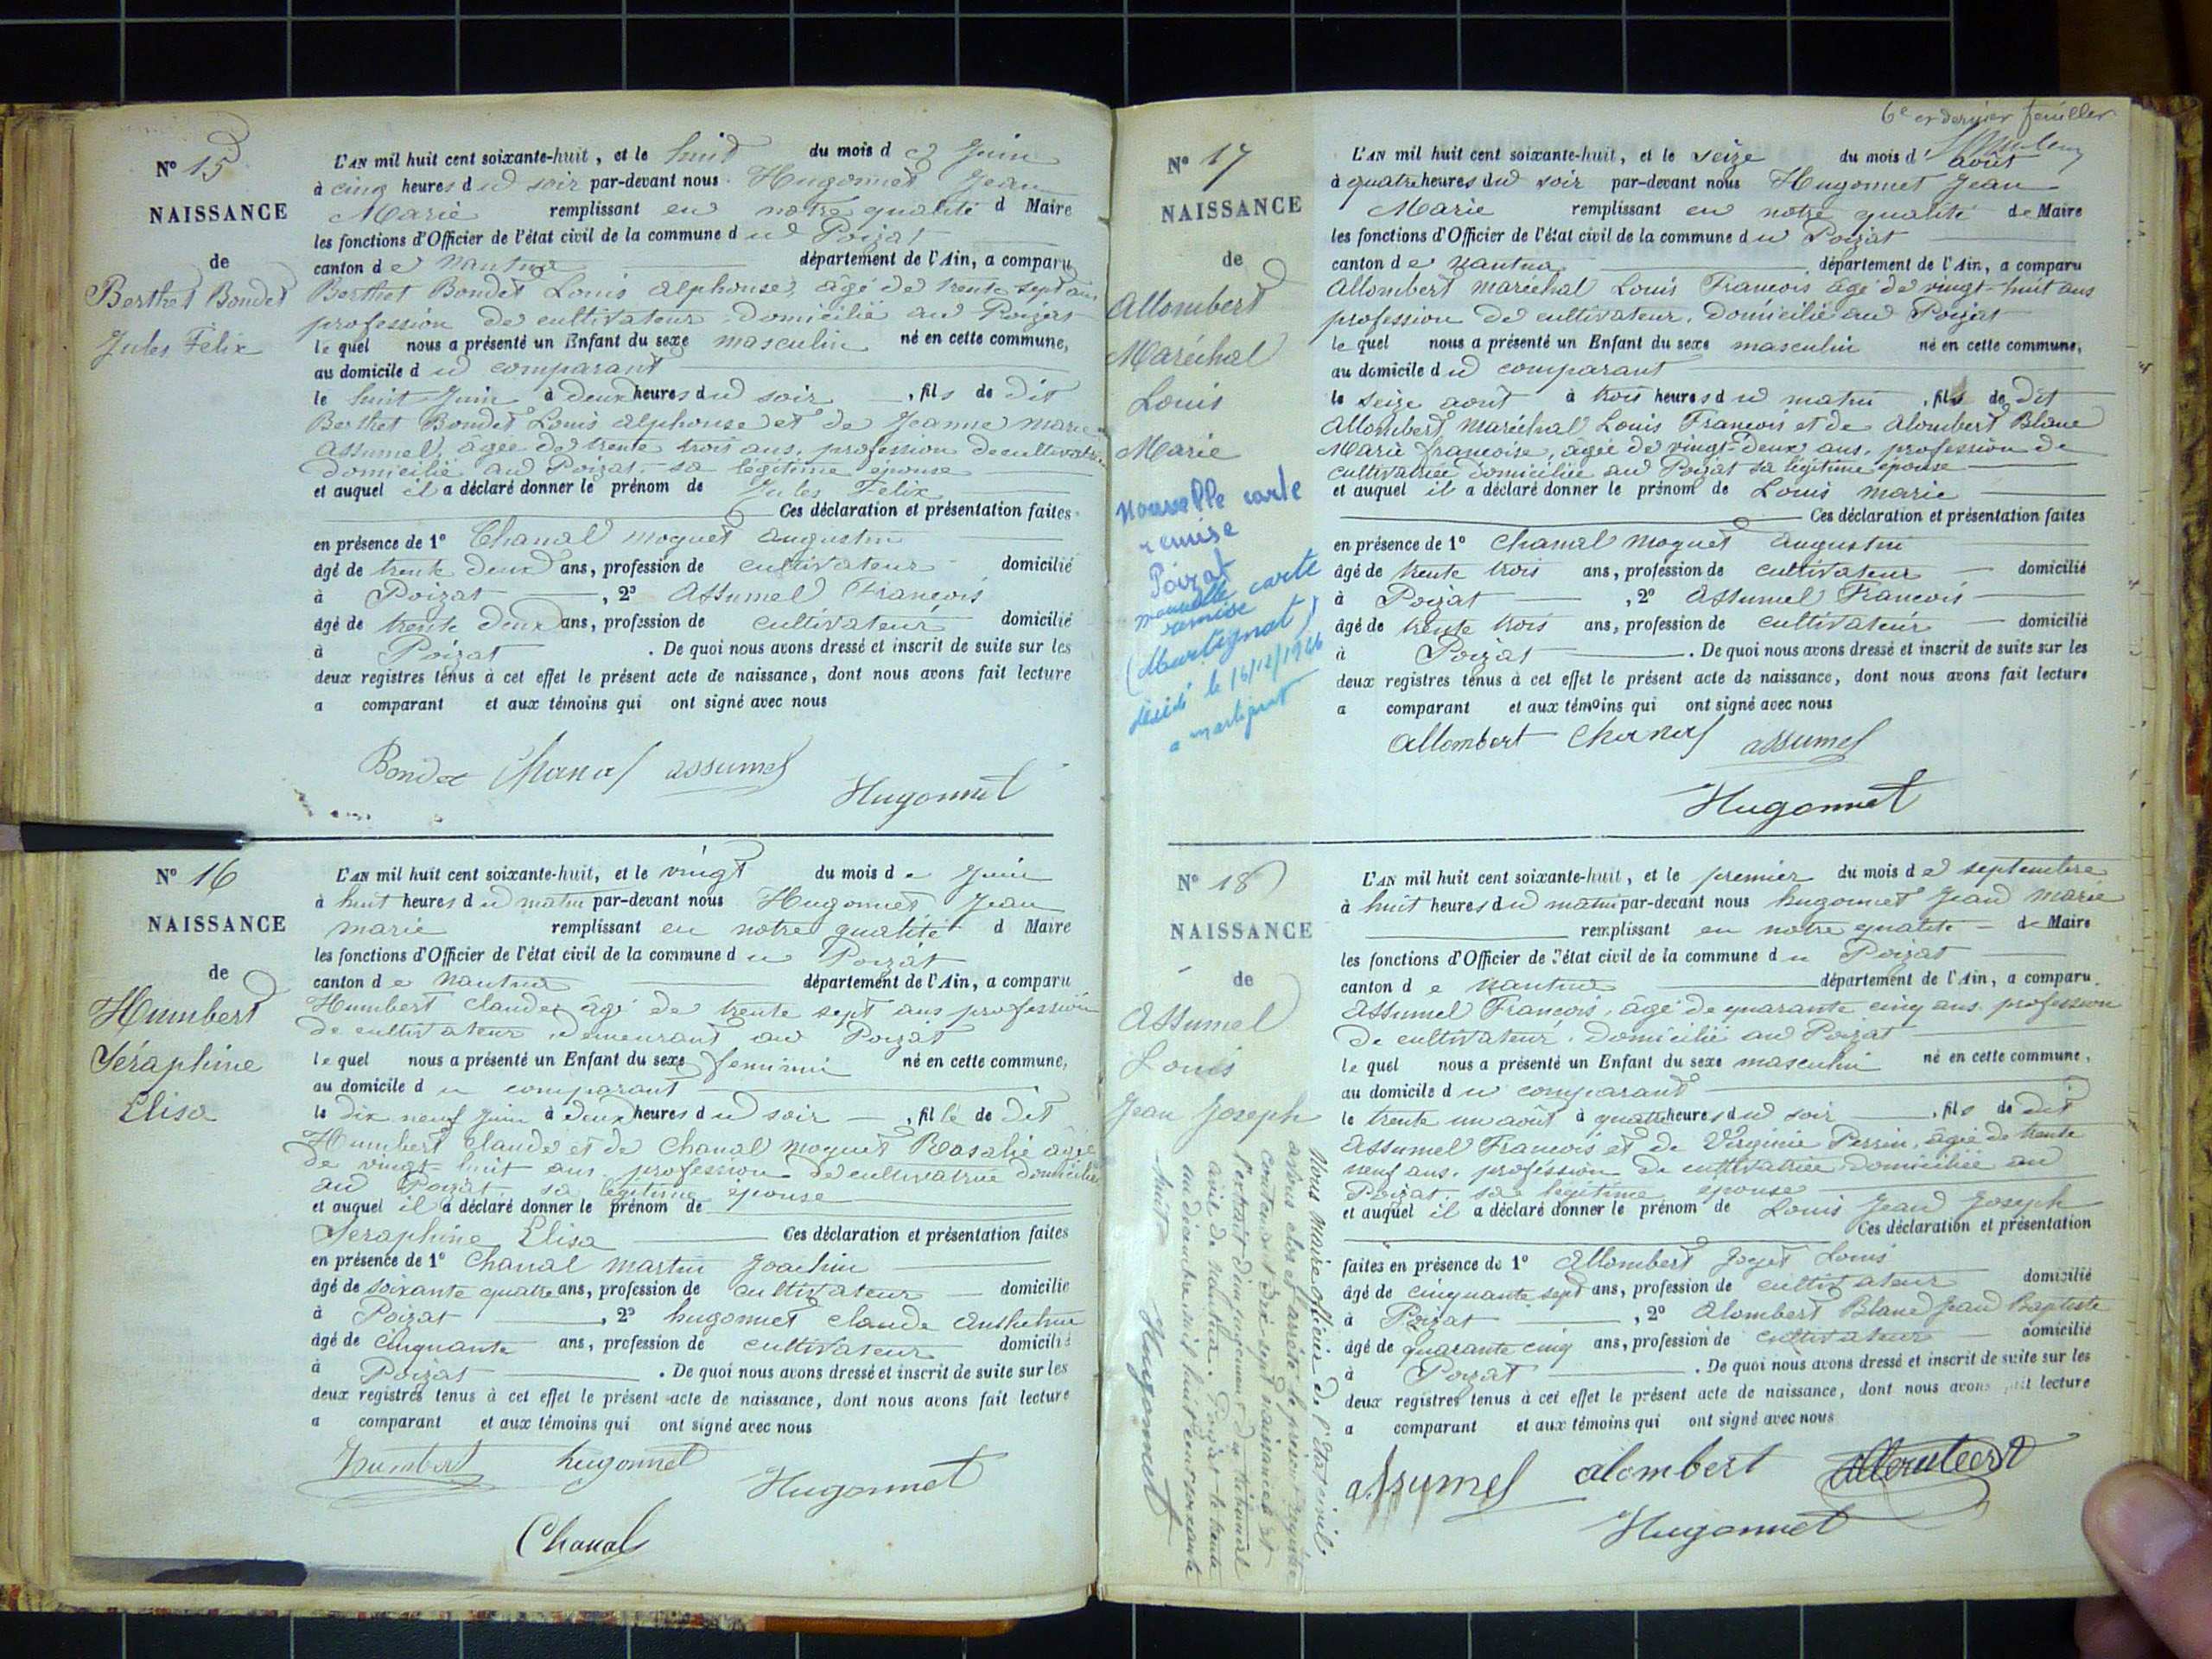 N° 15
NAISSANCE
de
Berthet Bondet
Jules Félix
L'AN mil huit cent soixante-huit, et le huit du mois de Juin
à cinq heures du soir par-devant nous Hugonnet Jean
Marie remplissant en notre qualité d Maire
les fonctions d'Officier de l'état civil de la commune du Poizat
canton de Nantua département de l'Ain, a comparu
Berthet Bondet Louis Alphonse, âgé de trente-sept ans
profession de cultivateur, domicilié au Poizat
lequel nous a présenté un Enfant du sexe masculin né en cette commune,
au domicile du comparant
le huit Juin à deux heures du soir, fils de dit
Berthet Bondet Louis Alphonse et de Jeanne Marie
Assumel, âgée de trente trois ans, profession de cultivatrice
domicilié au Poizat, sa légitime épouse
et auquel il a déclaré donner le prénom de Jules Félix
Ces déclaration et présentation faites
en présence de 1° Chanal Moquet Augustin
âgé de trente deux ans, profession de cultivateur domicilié
à Poizat, 2° Assumel François
âgé de trente deux ans, profession de cultivateur domicilié
à Poizat. De quoi nous avons dressé et inscrit de suite sur les
deux registres tenus à cet effet le présent acte de naissance, dont nous avons fait lecture
a comparant et aux témoins qui ont signé avec nous
Bondet Chanal assumel
Hugonnet
N° 16
NAISSANCE
de
Humbert
Séraphine
Elisa
L'AN mil huit cent soixante-huit, et le vingt du mois de Juin
à huit heures du matin par-devant nous Hugonnet Jean
marie remplissant en notre qualité d Maire
les fonctions d'Officier de l'état civil de la commune du Poizat
canton de Nantua département de l'Ain, a comparu
Humbert Claude, âgé de trente sept ans profession
de cultivateur, demeurant au Poizat
lequel nous a présenté un Enfant du sexe feminin né en cette commune,
au domicile du comparant
le dix neuf Juin à deux heures du soir, fille de dit
Humbert Claude et de Chanal Moquet Rosalie âgée
de vingt huit ans, profession de cultivatrice domiciliée
au Poizat, sa légitime épouse
et auquel il a déclaré donner le prénom de
Seraphine Elisa Ces déclaration et présentation faites
en présence de 1° Chanal Martin Joachim
âgé de soixante quatre ans, profession de cultivateur domicilié
à Poizat, 2° hugonnet Claude Anthelme
âgé de cinquante ans, profession de cultivateur domicilié
à Poizat. De quoi nous avons dressé et inscrit de suite sur les
deux registres tenus à cet effet le présent acte de naissance, dont nous avons fait lecture
a comparant et aux témoins qui ont signé avec nous
humbert hugonnet Hugonnet
Chanal
6e et dernier feuillet
N° 17
NAISSANCE
de
Allombert
Maréchal
Louis
Marie
Nouvelle carte
remise
Poizat
nouvelle carte
remise
(Martignat)
décédé le 16/12/1946
a martignat
L'AN mil huit cent soixante-huit, et le seize du mois d'août
à quatre heures du soir par-devant nous Hugonnet Jean
Marie remplissant en notre qualité de Maire
les fonctions d'Officier de l'état civil de la commune du Poizat
canton de Nantua département de l'Ain, a comparu
Allombert Maréchal Louis François âgé de vingt-huit ans
profession de cultivateur, domicilié au Poizat
lequel nous a présenté un Enfant du sexe masculin né en cette commune,
au domicile du comparant
le seize août à trois heures du matin, fils de dit
Allombert Maréchal Louis François et de Alombert Blanc
Marie françoise, âgée de vingt-deux ans, profession de
cultivatrice domiciliée au Poizat sa légitime épouse
et auquel il a déclaré donner le prénom de Louis Marie
Ces déclaration et présentation faites
en présence de 1° Chanal Moquet Augustin
âgé de trente trois ans, profession de cultivateur domicilié
à Poizat, 2° Assumel François
âgé de trente trois ans, profession de cultivateur domicilié
à Poizat. De quoi nous avons dressé et inscrit de suite sur les
deux registres tenus à cet effet le présent acte de naissance, dont nous avons fait lecture
a comparant et aux témoins qui ont signé avec nous
Allombert Chanal assumel
Hugonnet
N° 18
NAISSANCE
de
Assumel
Louis
Jean Joseph
L'AN mil huit cent soixante-huit, et le premier du mois de septembre
à huit heures du matin par-devant nous hugonnet Jean Marie
remplissant en notre qualité de Maire
les fonctions d'Officier de l'état civil de la commune du Poizat
canton de Nantua département de l'Ain, a comparu
Assumel François, âgé de quarante cinq ans profession
de cultivateur, domicilié au Poizat
lequel nous a présenté un Enfant du sexe masculin né en cette commune,
au domicile du comparant
le trente un août à quatre heures du soir, fils de dit
Assumel François et de Virginie Perrin, âgée de trente
neuf ans, profession de cultivatrice domiciliée au
Poizat, sa légitime épouse
et auquel il a déclaré donner le prénom de Louis Jean Joseph
Ces déclaration et présentation
faites en présence de 1° Allombert Louis
âgé de cinquante sept ans, profession de cultivateur domicilié
à Poizat, 2° Alombert Blanc Jean Baptiste
âgé de quarante cinq ans, profession de cultivateur domicilié
à Poizat. De quoi nous avons dressé et inscrit de suite sur les
deux registres tenus à cet effet le présent acte de naissance, dont nous avons fait lecture
a comparant et aux témoins qui ont signé avec nous
assumel alombert Allombert
Hugonnet
Nous Maire officier de l'état civil,
avons clos et arrêté le présent registre
contenant dix-sept naissances et
l'extrait d'un jugement du tribunal
civil de Nantua. Poizat le trente
un décembre mil huit cent soixante
huit
Hugonnet